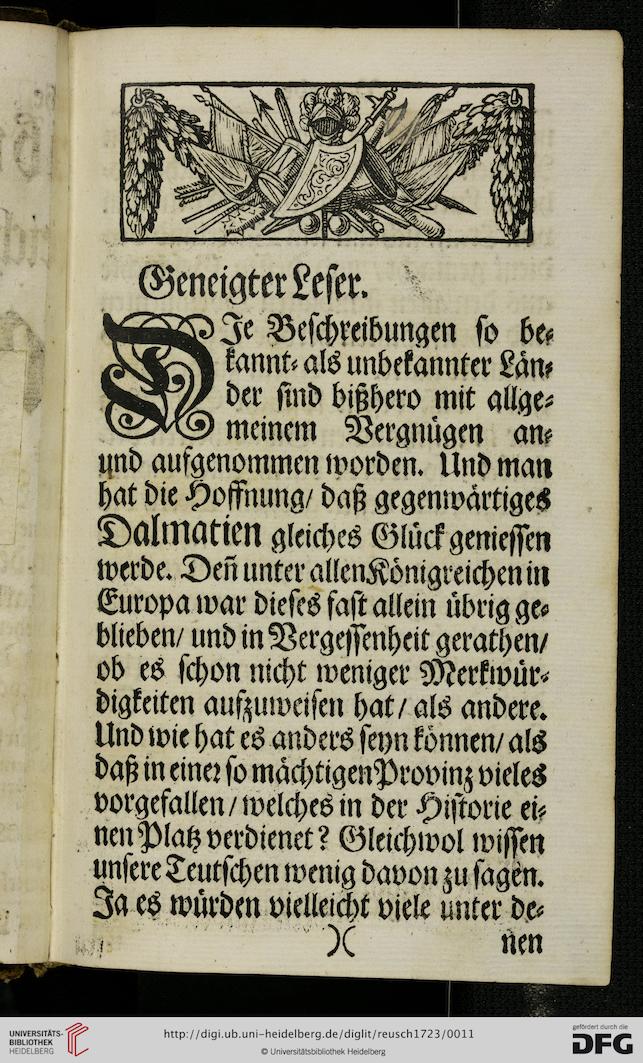 Geneigter Leser.
DJe Beschreibungen so be⸗
kannt⸗ als unbekannter Län⸗
der sind bißhero mit allge⸗
meinem Vergnügen an⸗
und aufgenommen worden. Und man
hat die Hoffnung/ daß gegenwärtiges
Dalmatien gleiches Glück geniessen
werde. Deñ unter allen Königreichen in
Europa war dieses fast allein übrig ge⸗
blieben/ und in Vergessenheit gerathen/
ob es schon nicht weniger Merkwür⸗
digkeiten aufzuweisen hat/ als andere.
Und wie hat es anders seyn können/ als
daß in einer so mächtigen Provinz vieles
vorgefallen/ welches in der Historie ei⸗
nen Platz verdienet? Gleichwol wissen
unsere Teutschen wenig davon zu sagen.
Ja es würden vielleicht viele unter de⸗
)( nen
UNIVERSITÄTS-
BIBLIOTHEK
HEIDELBERG
http://digi.ub.uni-heidelberg.de/diglit/reusch1723/0011
© Universitätsbibliothek Heidelberg
gefördert durch die
DFG